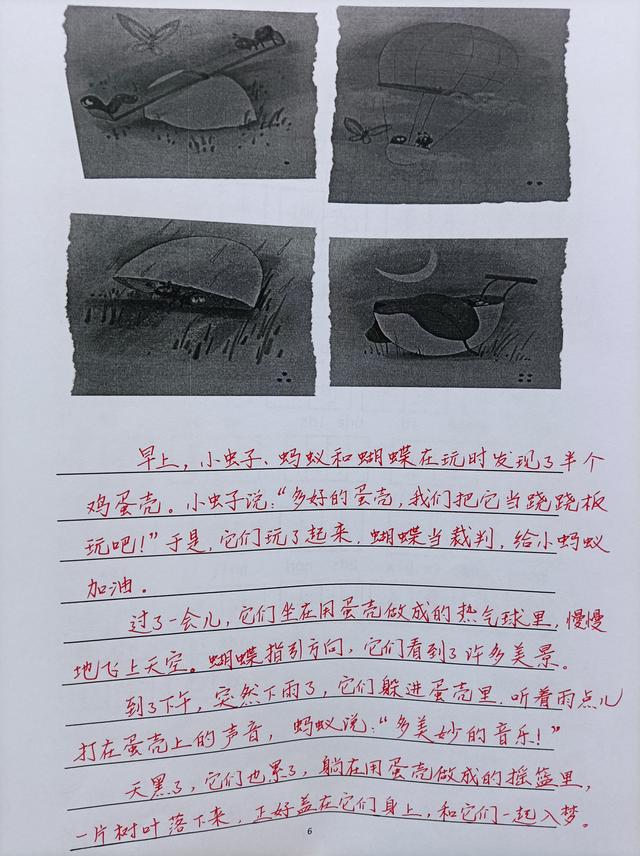 早上，小虫子、蚂蚁和蝴蝶在玩时发现了半个
鸡蛋壳。小虫子说：“多好的蛋壳，我们把它当跷跷板
玩吧！”于是，它们玩了起来，蝴蝶当裁判，给小蚂蚁
加油。
过了一会儿，它们坐在用蛋壳做成的热气球里，慢慢
地飞上天空。蝴蝶指引方向，它们看到了许多美景。
到了下午，突然下雨了，它们躲进蛋壳里，听着雨点儿
打在蛋壳上的声音，蚂蚁说：“多美妙的音乐！”
天黑了，它们也累了，躺在用蛋壳做成的摇篮里，
一片树叶落下来，正好盖在它们身上，和它们一起入梦。
6